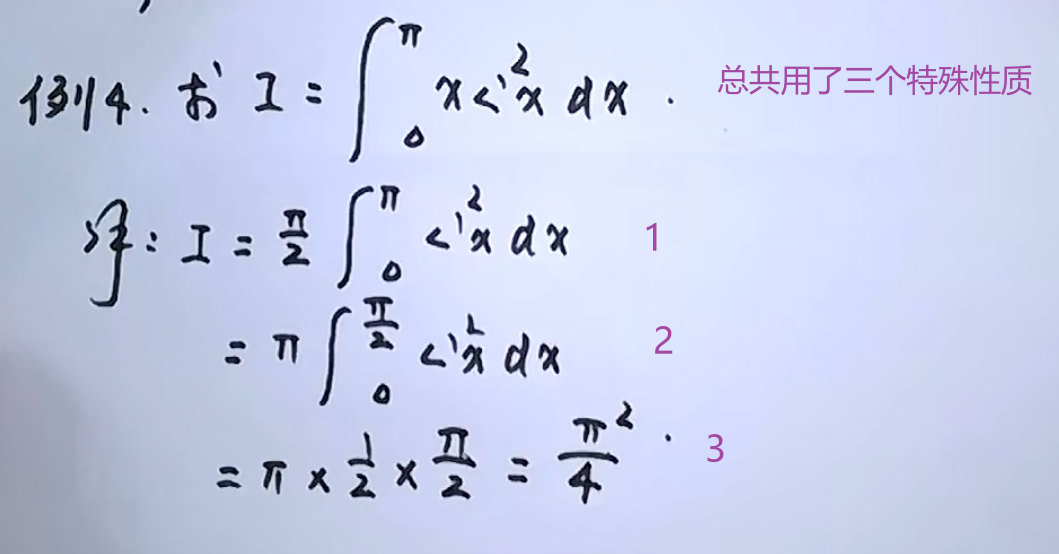 例4. 求 I = ∫₀^π x sin²x dx . 总共用了三个特殊性质
解: I = π/2 ∫₀^π sin²x dx 1
= π ∫₀^(π/2) sin²x dx 2
= π × 1/2 × π/2 = π²/4 . 3